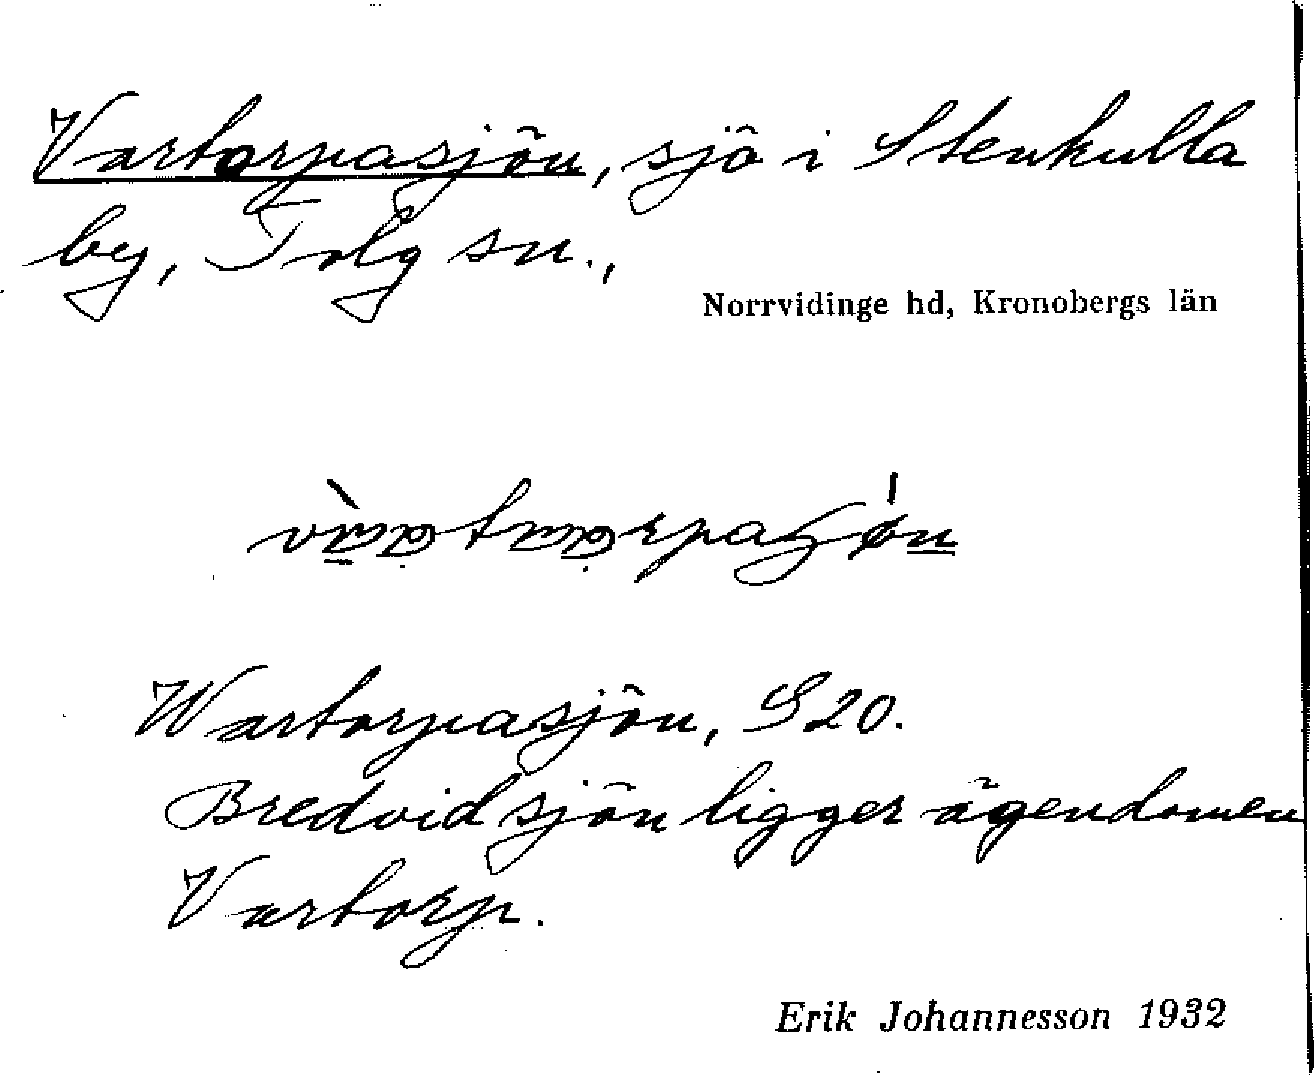 Vartorpasjön, sjö i Stenkulla
by, Tolg sn.,
Norrvidinge hd, Kronobergs län
Wartorpasjön, S20.
Bredvid sjön ligger ägendomen
Vartorp.
Erik Johannesson 1932